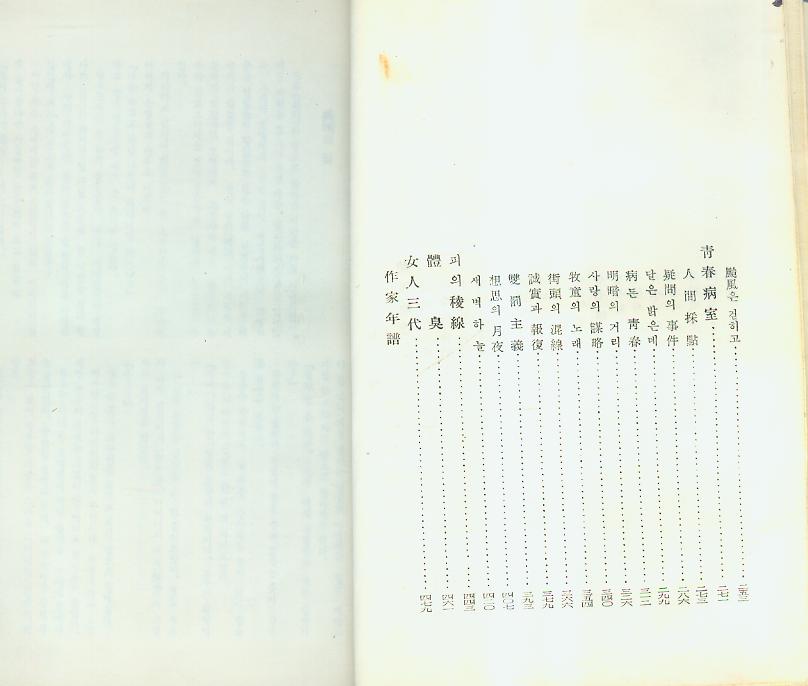 颱風은 걷히고 二五三
靑春病室 二七一
人間採點 二七三
疑問의 事件 二八六
달은 밝은데 二九九
病든 靑春 三一二
明暗의 거리 三二六
사랑의 謀略 三四〇
牧童의 노래 三五四
街頭의 混線 三六六
誠實과 報復 三七九
雙罰主義 三九三
想思의 月夜 四〇七
새벽하늘 四二〇
피의 稜線 四四三
體臭 四六一
女人三代 四七九
作家年譜